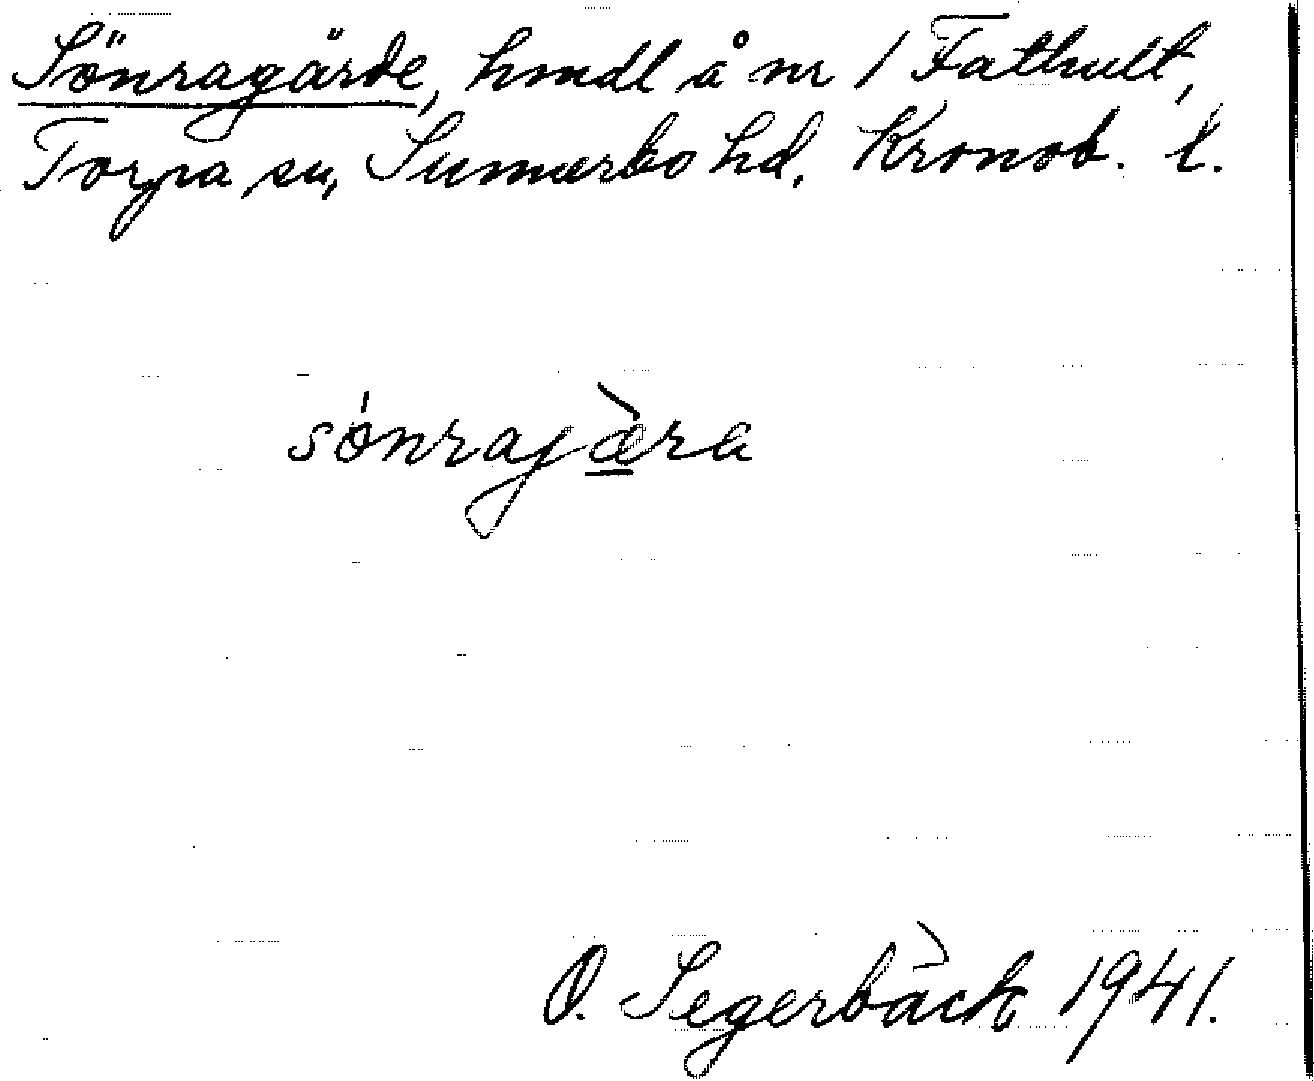 Sönragärde, hmdl å nr 1 Fathult,
Torpa sn, Sunnerbo hd, Kronob. l.
sónrajæ̀ra
O. Segerbäck 1941.